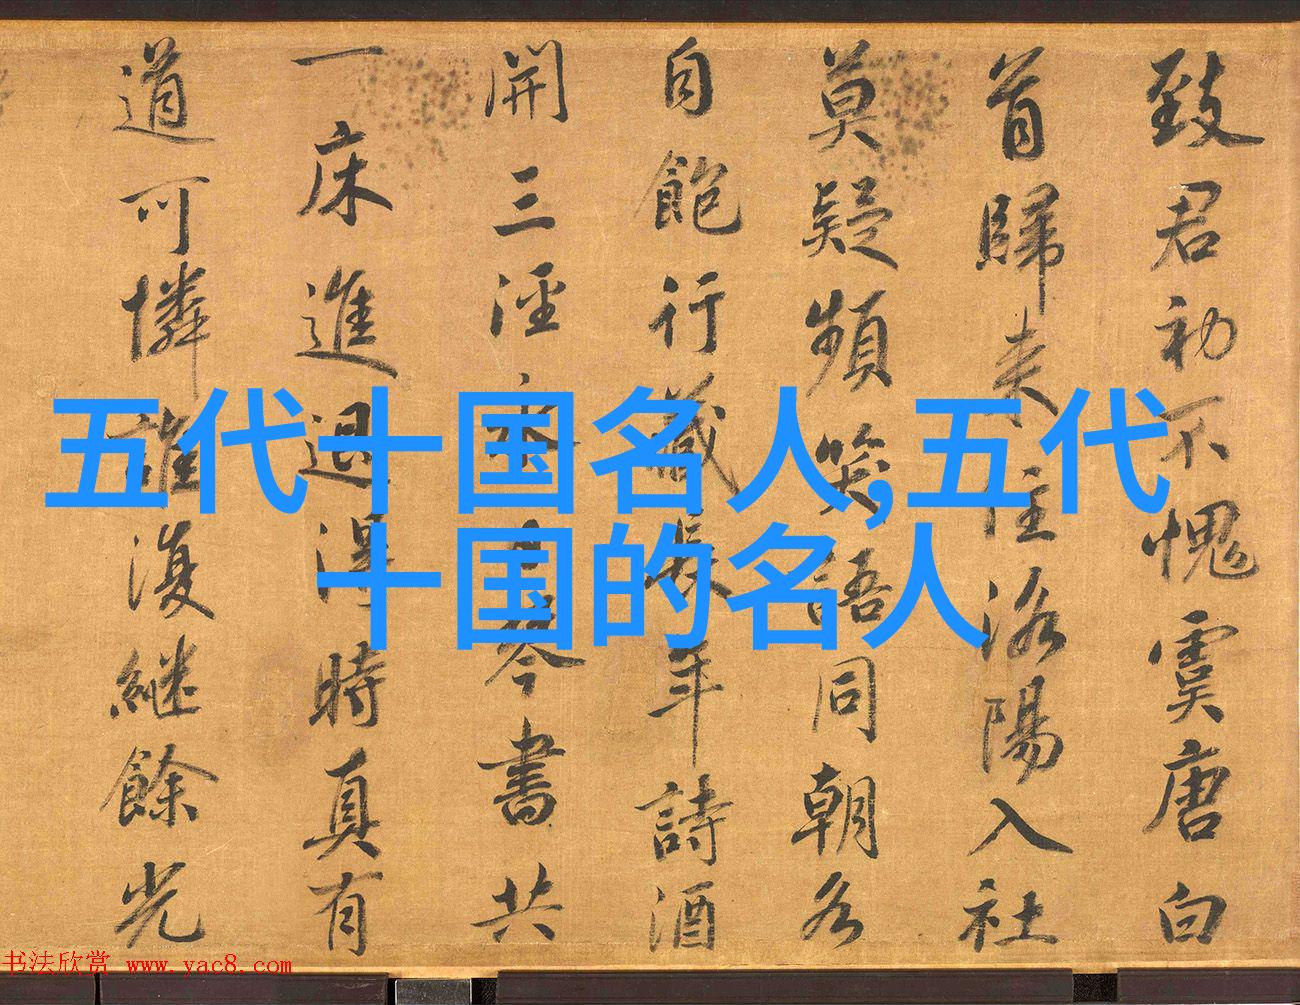 致君初不愧虞唐白
首歸来住洛陽入社
莫疑頻笑語同朝各
自飽行藏長年詩酒
開三徑永日琴書共
一床進退得時真有
道可憐誰復継餘光
五代十国名人,五代
十国的名人
书法欣赏 www.yac8.com